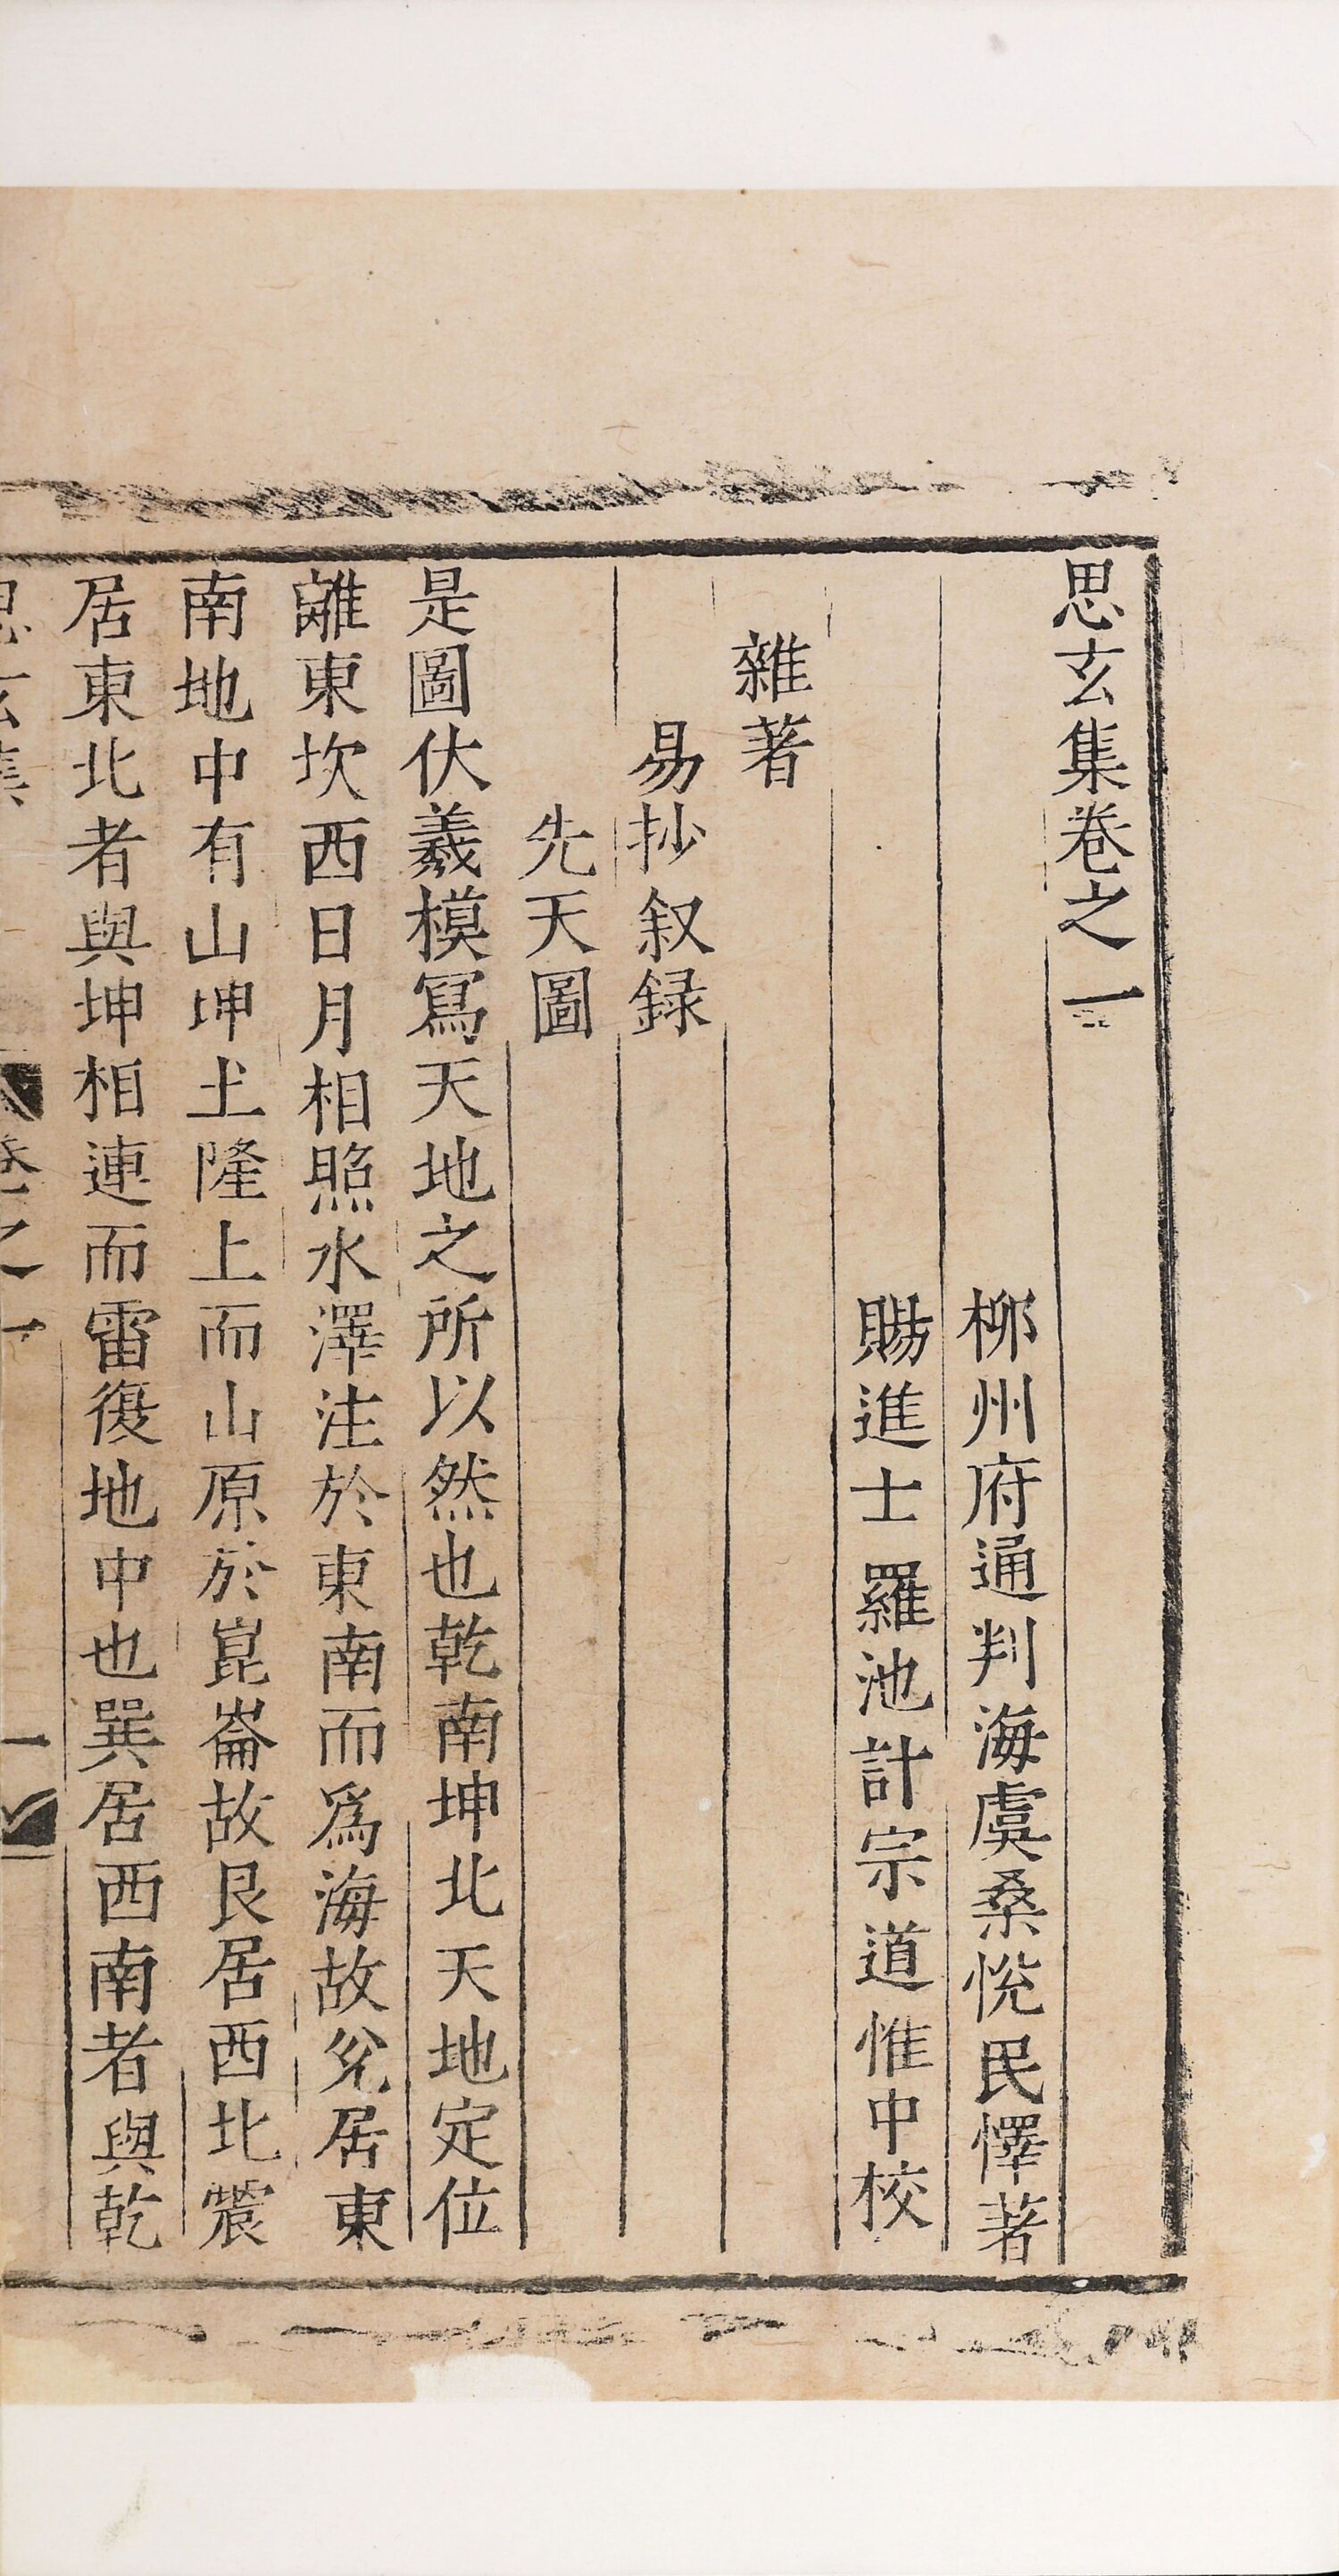 思玄集卷之一
柳州府通判海虞桑悅民懌著
賜進士羅池計宗道惟中校
雜著
易抄叙録
先天圖
是圖伏羲模寫天地之所以然也乾南坤北天地定位
離東坎西日月相照水澤注於東南而爲海故兊居東
南地中有山坤土隆上而山原於崑崙故艮居西北震
居東北者與坤相連而雷復地中也巽居西南者與乾
思玄集
卷之一
一